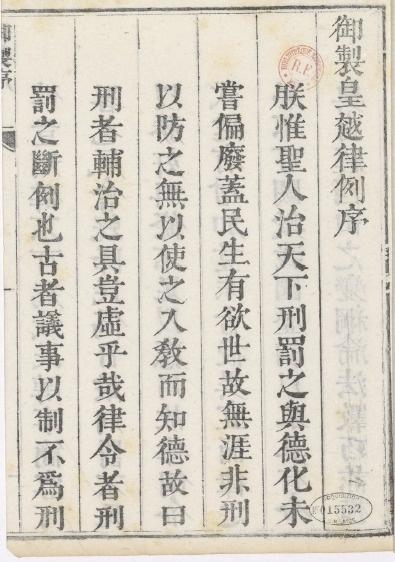 御製皇越律例序
朕惟聖人治天下刑罰之與德化未
嘗偏廢蓋民生有欲世故無涯非刑
以防之無以使之入敎而知德故曰
刑者輔治之具豈虛乎哉律令者刑
罰之斷例也古者議事以制不爲刑
御製序
R.F.
015532